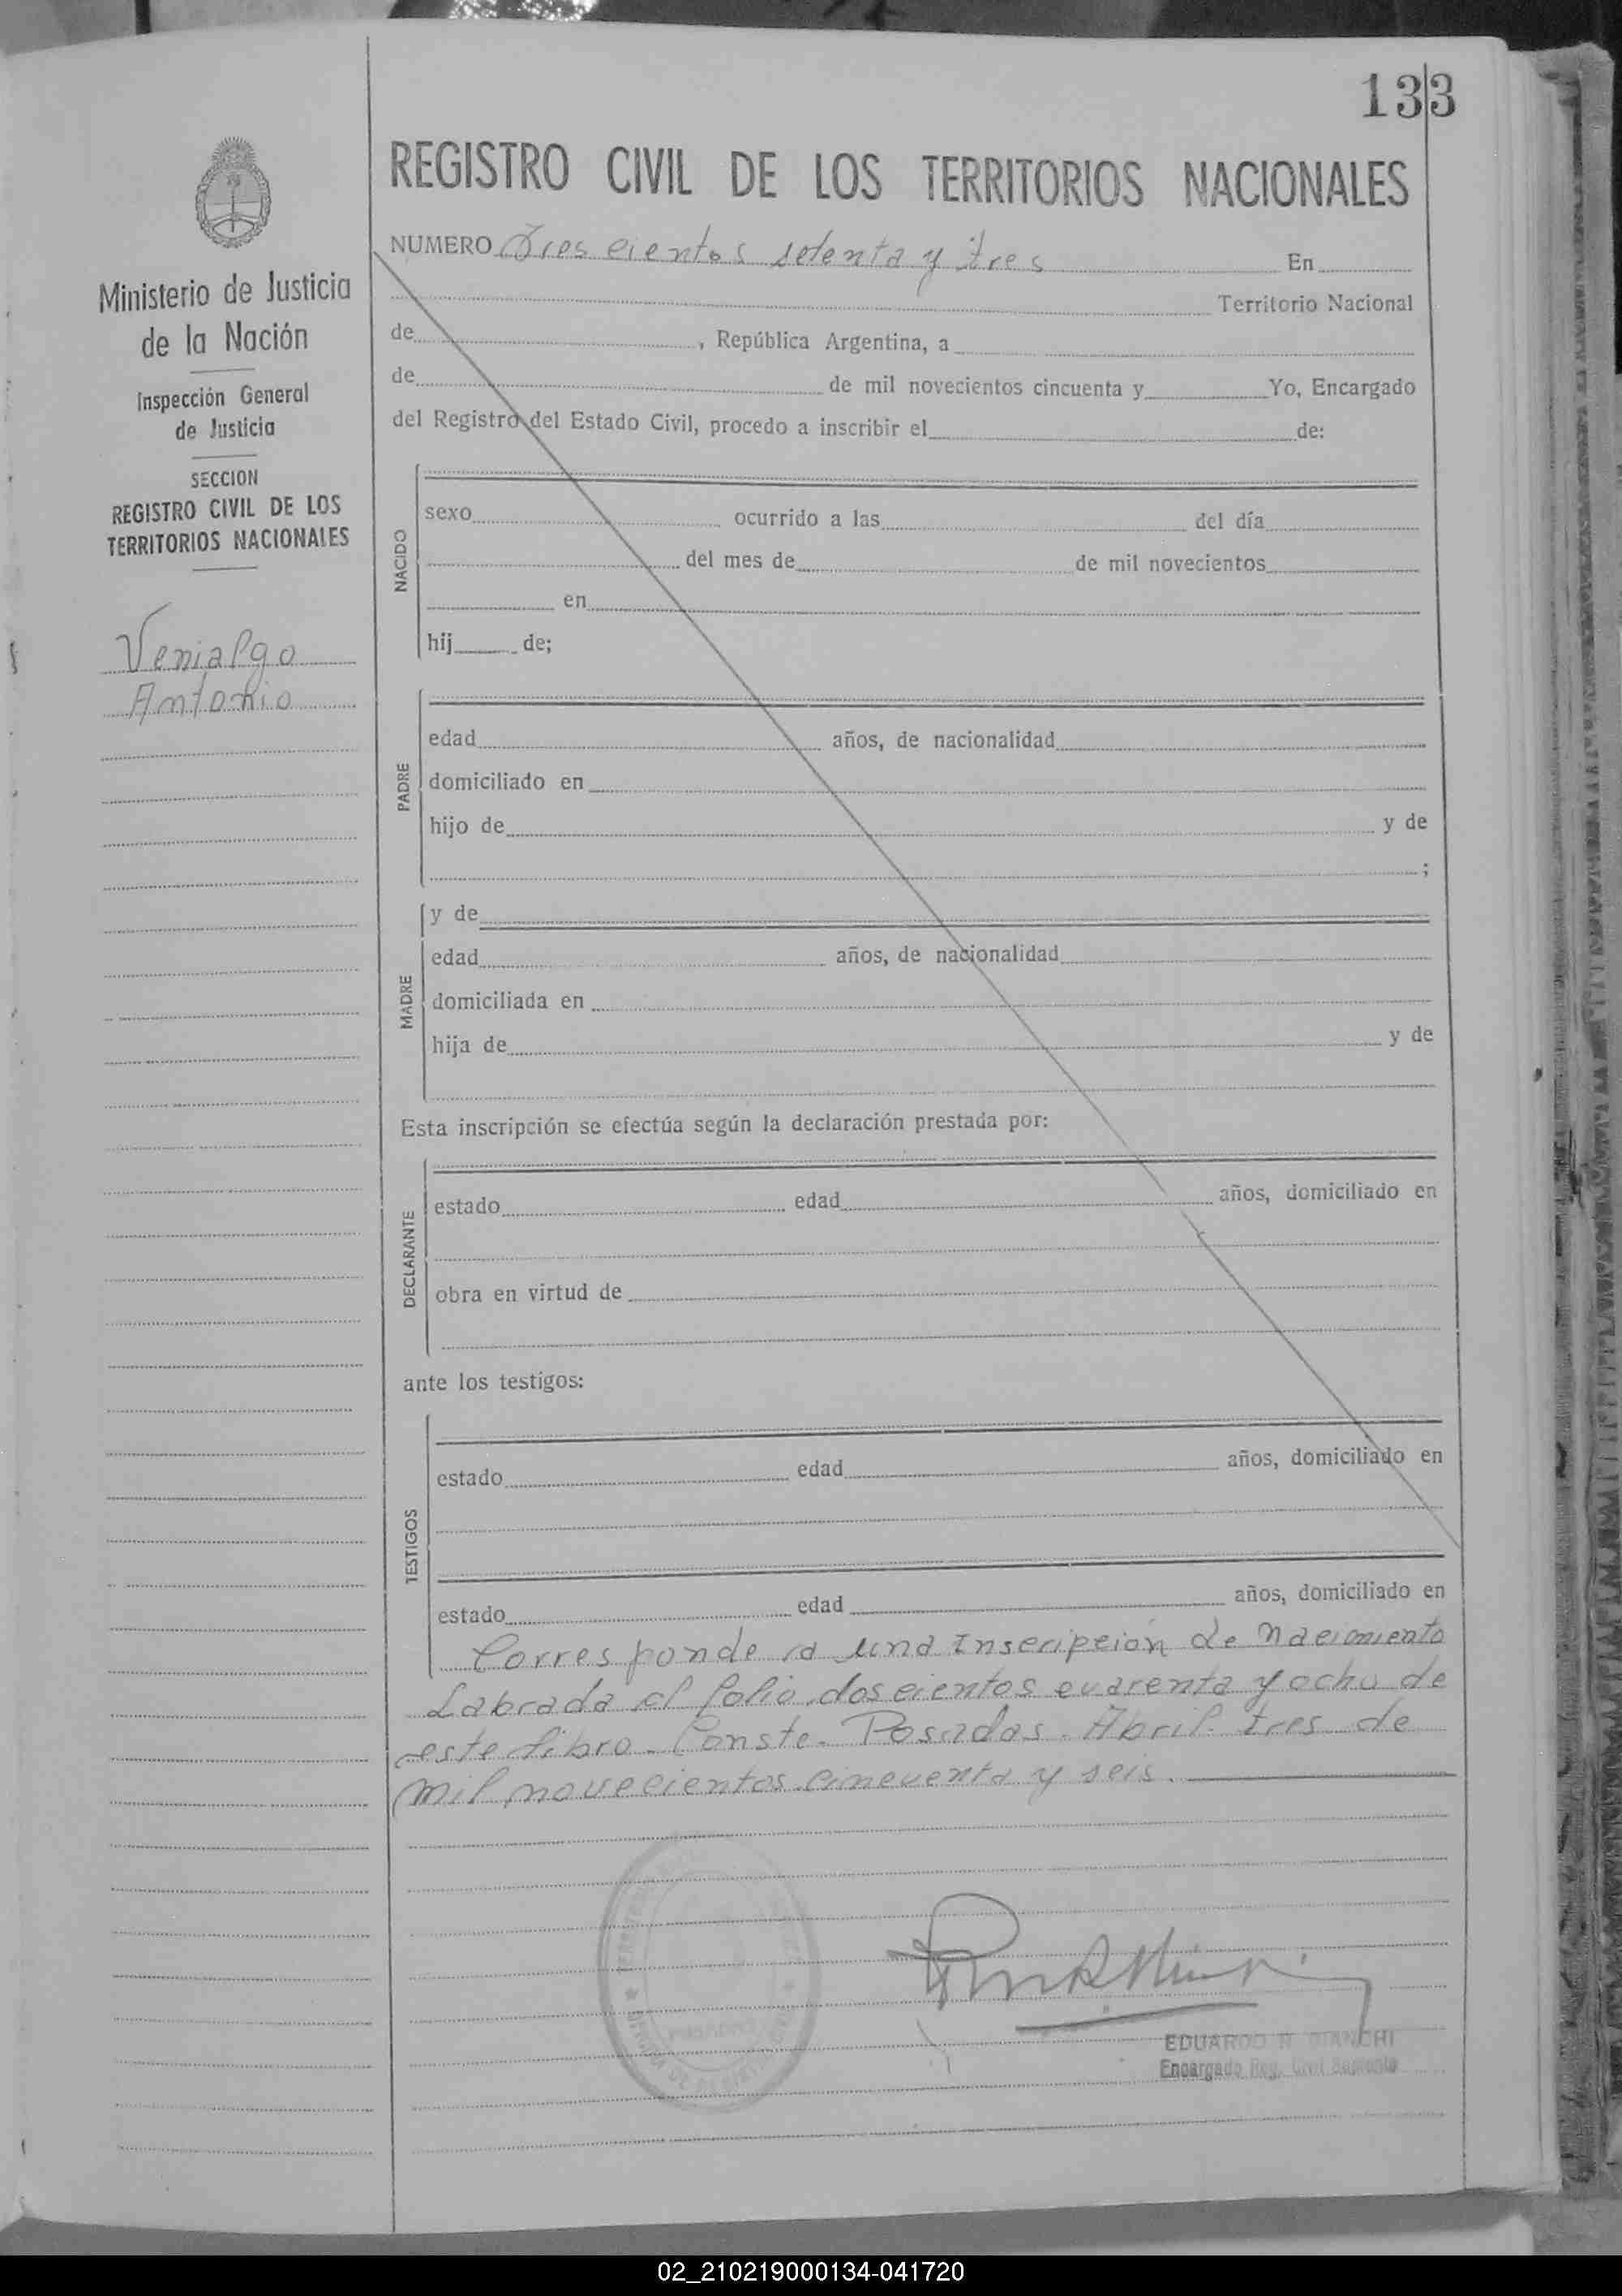 133
REGISTRO CIVIL DE LOS TERRITORIOS NACIONALES
Ministerio de Justicia
de la Nación
Inspección General
de Justicia
SECCION
REGISTRO CIVIL DE LOS
TERRITORIOS NACIONALES
Venialgo
Antonio
NUMERO Trescientos setenta y tres En
Territorio Nacional
de , República Argentina, a
de de mil novecientos cincuenta y Yo, Encargado
del Registro del Estado Civil, procedo a inscribir el de:
NACIDO
sexo ocurrido a las del día
del mes de de mil novecientos
en
hij de;
PADRE
edad años, de nacionalidad
domiciliado en
hijo de y de
;
MADRE
y de
edad años, de nacionalidad
domiciliada en
hija de y de
Esta inscripción se efectúa según la declaración prestada por:
DECLARANTE
estado edad años, domiciliado en
obra en virtud de
ante los testigos:
TESTIGOS
estado edad años, domiciliado en
estado edad años, domiciliado en
Corresponde a una Inscripción de Nacimiento
Labrada al folio doscientos cuarenta y ocho de
este libro. Conste. Posadas. Abril tres de
mil novecientos cincuenta y seis.
EDUARDO R. BIANCHI
Encargado Reg. Civil
02_210219000134-041720